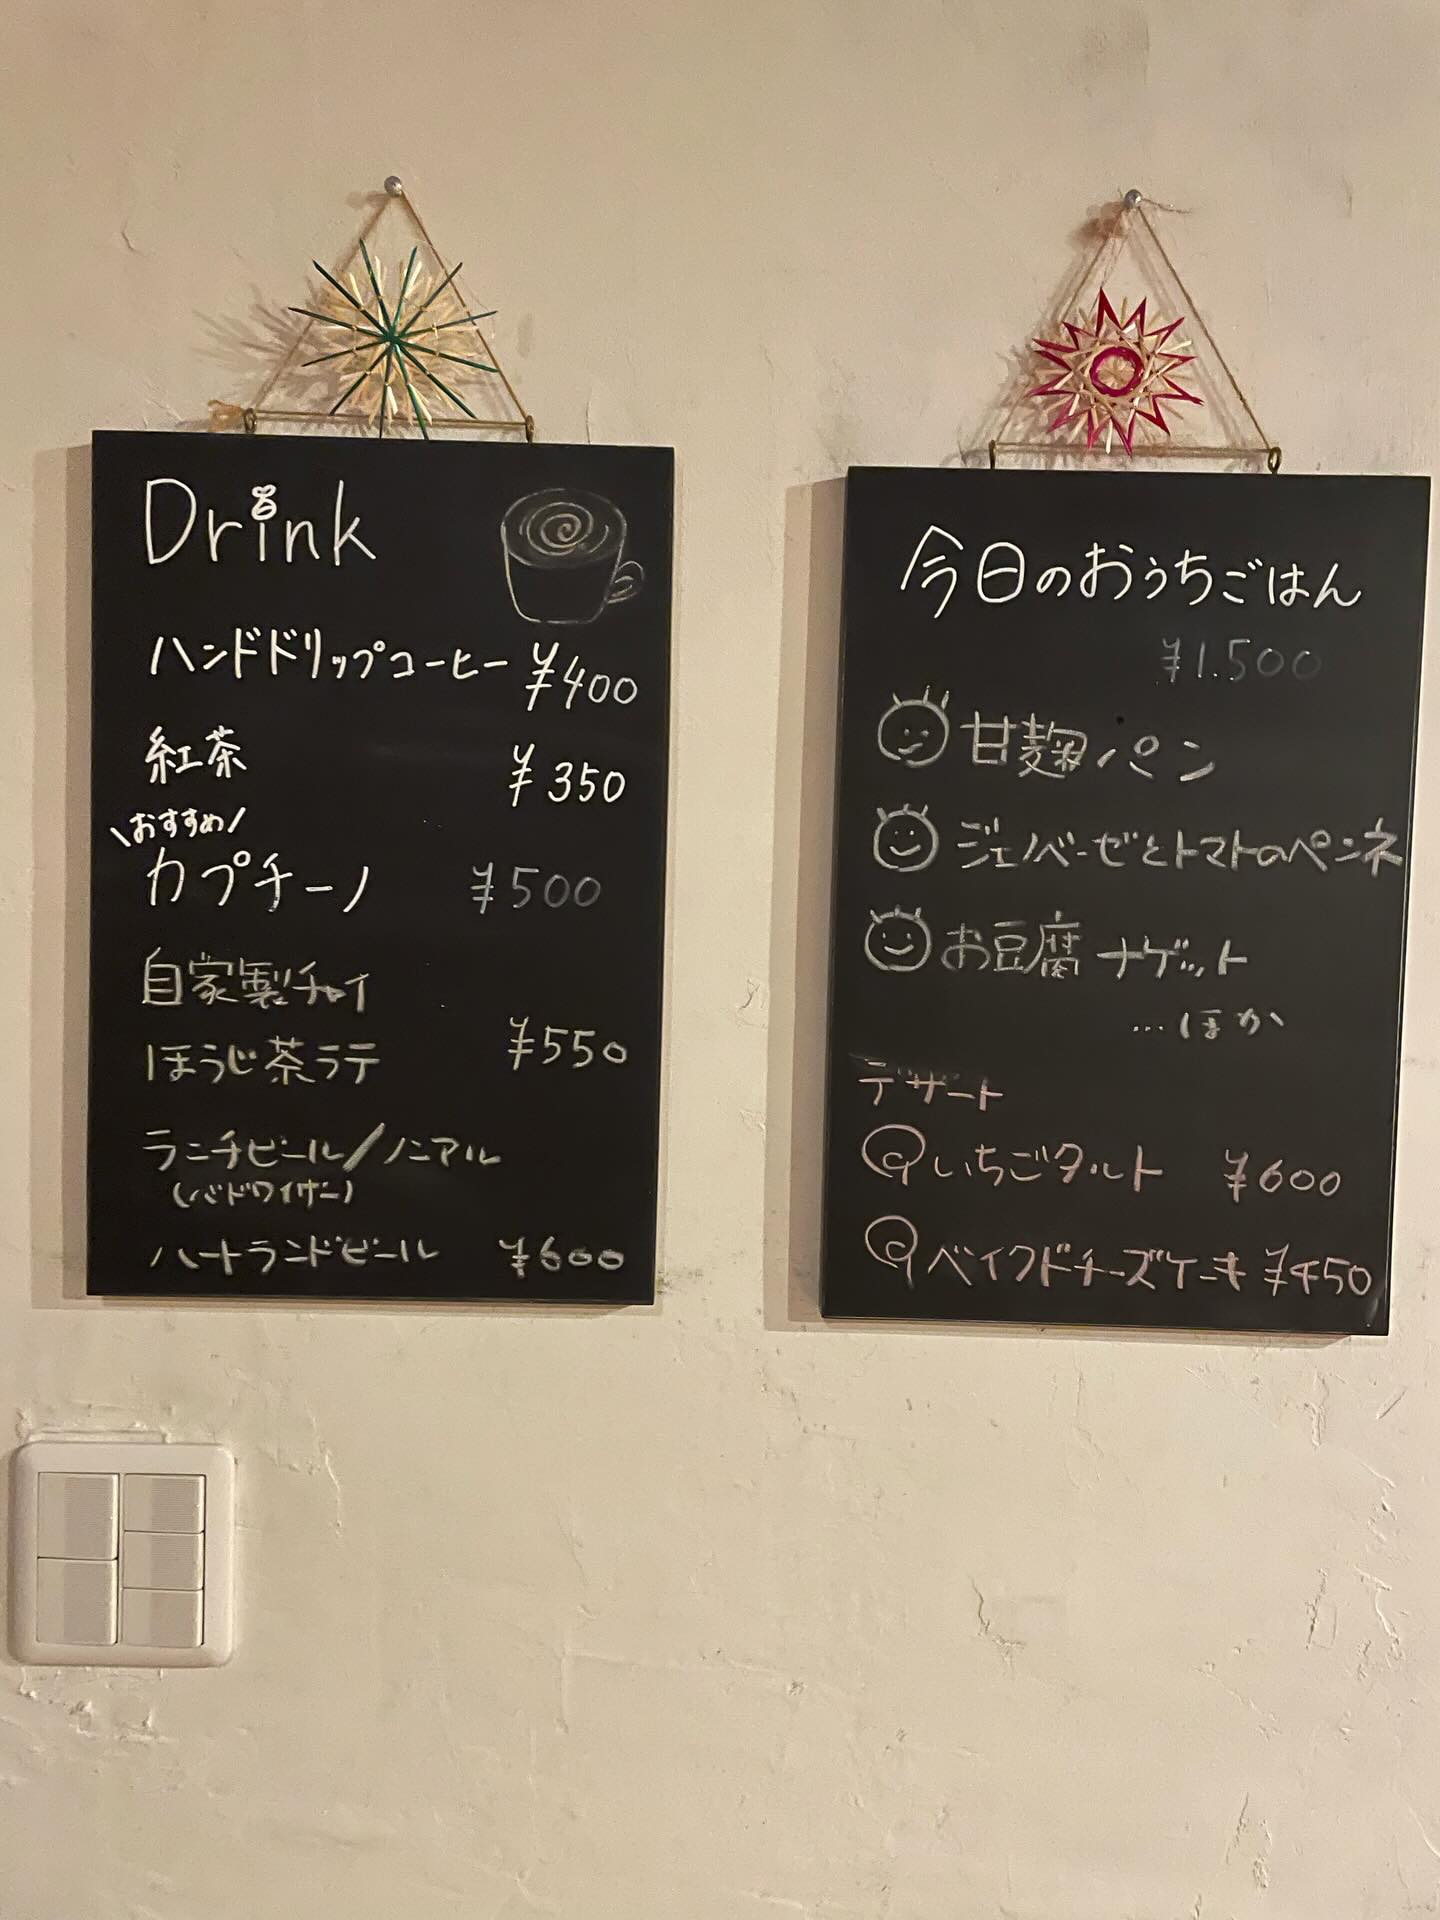 Drink
ハンドドリップコーヒー ¥400
紅茶 ¥350
\おすすめ/
カプチーノ ¥500
自家製チャイ
ほうじ茶ラテ ¥550
ランチビール/ノンアル
(バドワイザー)
ハートランドビール ¥600
今日のおうちごはん
¥1.500
甘麹パン
ジェノベーゼとトマトのペンネ
お豆腐ナゲット
…ほか
デザート
いちごタルト ¥600
ベイクドチーズケーキ ¥450